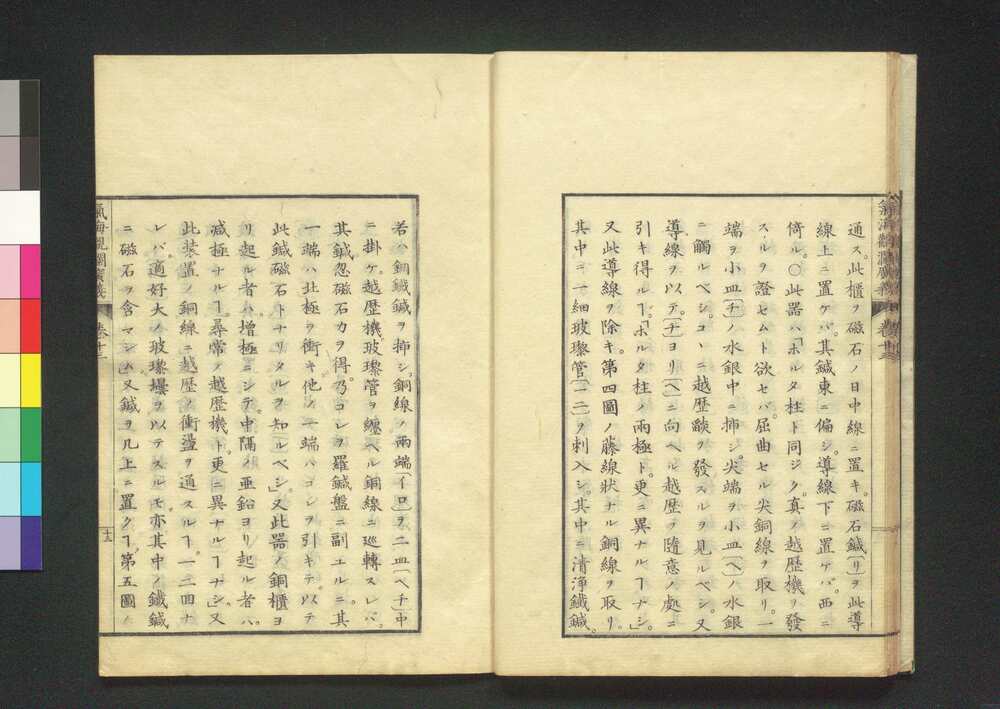 通ス。此櫃ヲ磁石ノ日中線ニ置キ。磁石鍼〔リ〕ヲ此導
線上ニ置ケバ。其鍼東ニ偏シ。導線下ニ置ケバ。西ニ
倚ル。〇此器ハ「ボルタ柱ト同ジク。真ノ越歴機ヲ發
スルヲ證セムト欲セバ。屈曲セル尖銅線ヲ取リ。一
端ヲ小皿〔チ〕ノ水銀中ニ挿シ。尖端ヲ小皿〔ヘ〕ノ水銀
ニ觸ルベシ。コヽニ越歴燄ヲ發スルヲ見ルベシ又
導線ヲ以テ。〔チ〕ヨリ〔ヘ〕ニ向ヘル越歴ヲ隨意ノ處ニ
引キ得ルヿ。「ボルタ柱ノ兩極ト。更ニ異ナルヿナシ。」
又此導線ヲ除キ。第四圖ノ藤線狀ナル銅線ヲ取リ。
其中ニ。一細玻瓈管〔一二〕ヲ刺入シ。其中ニ清浄鐵鍼。
若ハ鋼鐵鍼ヲ挿シ。銅線ノ兩端〔イロ〕ヲ二皿〔ヘチ〕中
ニ掛ケ。越歴機。玻瓈管ヲ纏ヘル銅線ニ巡轉スレバ。
其鍼忽磁石力ヲ得。乃コレヲ羅鍼盤ニ副エルニ。其
一端ハ北極ヲ衝キ他ノ一端ハコレヲ引キテ。以テ
此鍼磁石トナリタルヲ知ルベシ」又此器ノ銅櫃ヨ
リ起ル者ハ。増極ニシテ。中隔ノ亜鉛ヨリ起ル者ハ。
减極ナルヿ。尋常ノ越歴機ト。更ニ異ナルヿナシ」又
此装置ノ銅線ニ越歴ノ衝盪ヲ通スルヿ。一二四ナ
レバ。適好大ノ玻瓈壜ヲ以テスルモ。亦其中ノ鐵鍼
ニ磁石ヲ含マシム」又鍼ヲ几上ニ置クヿ。第五圖ノ
氣海觀瀾廣義
卷十二
十九